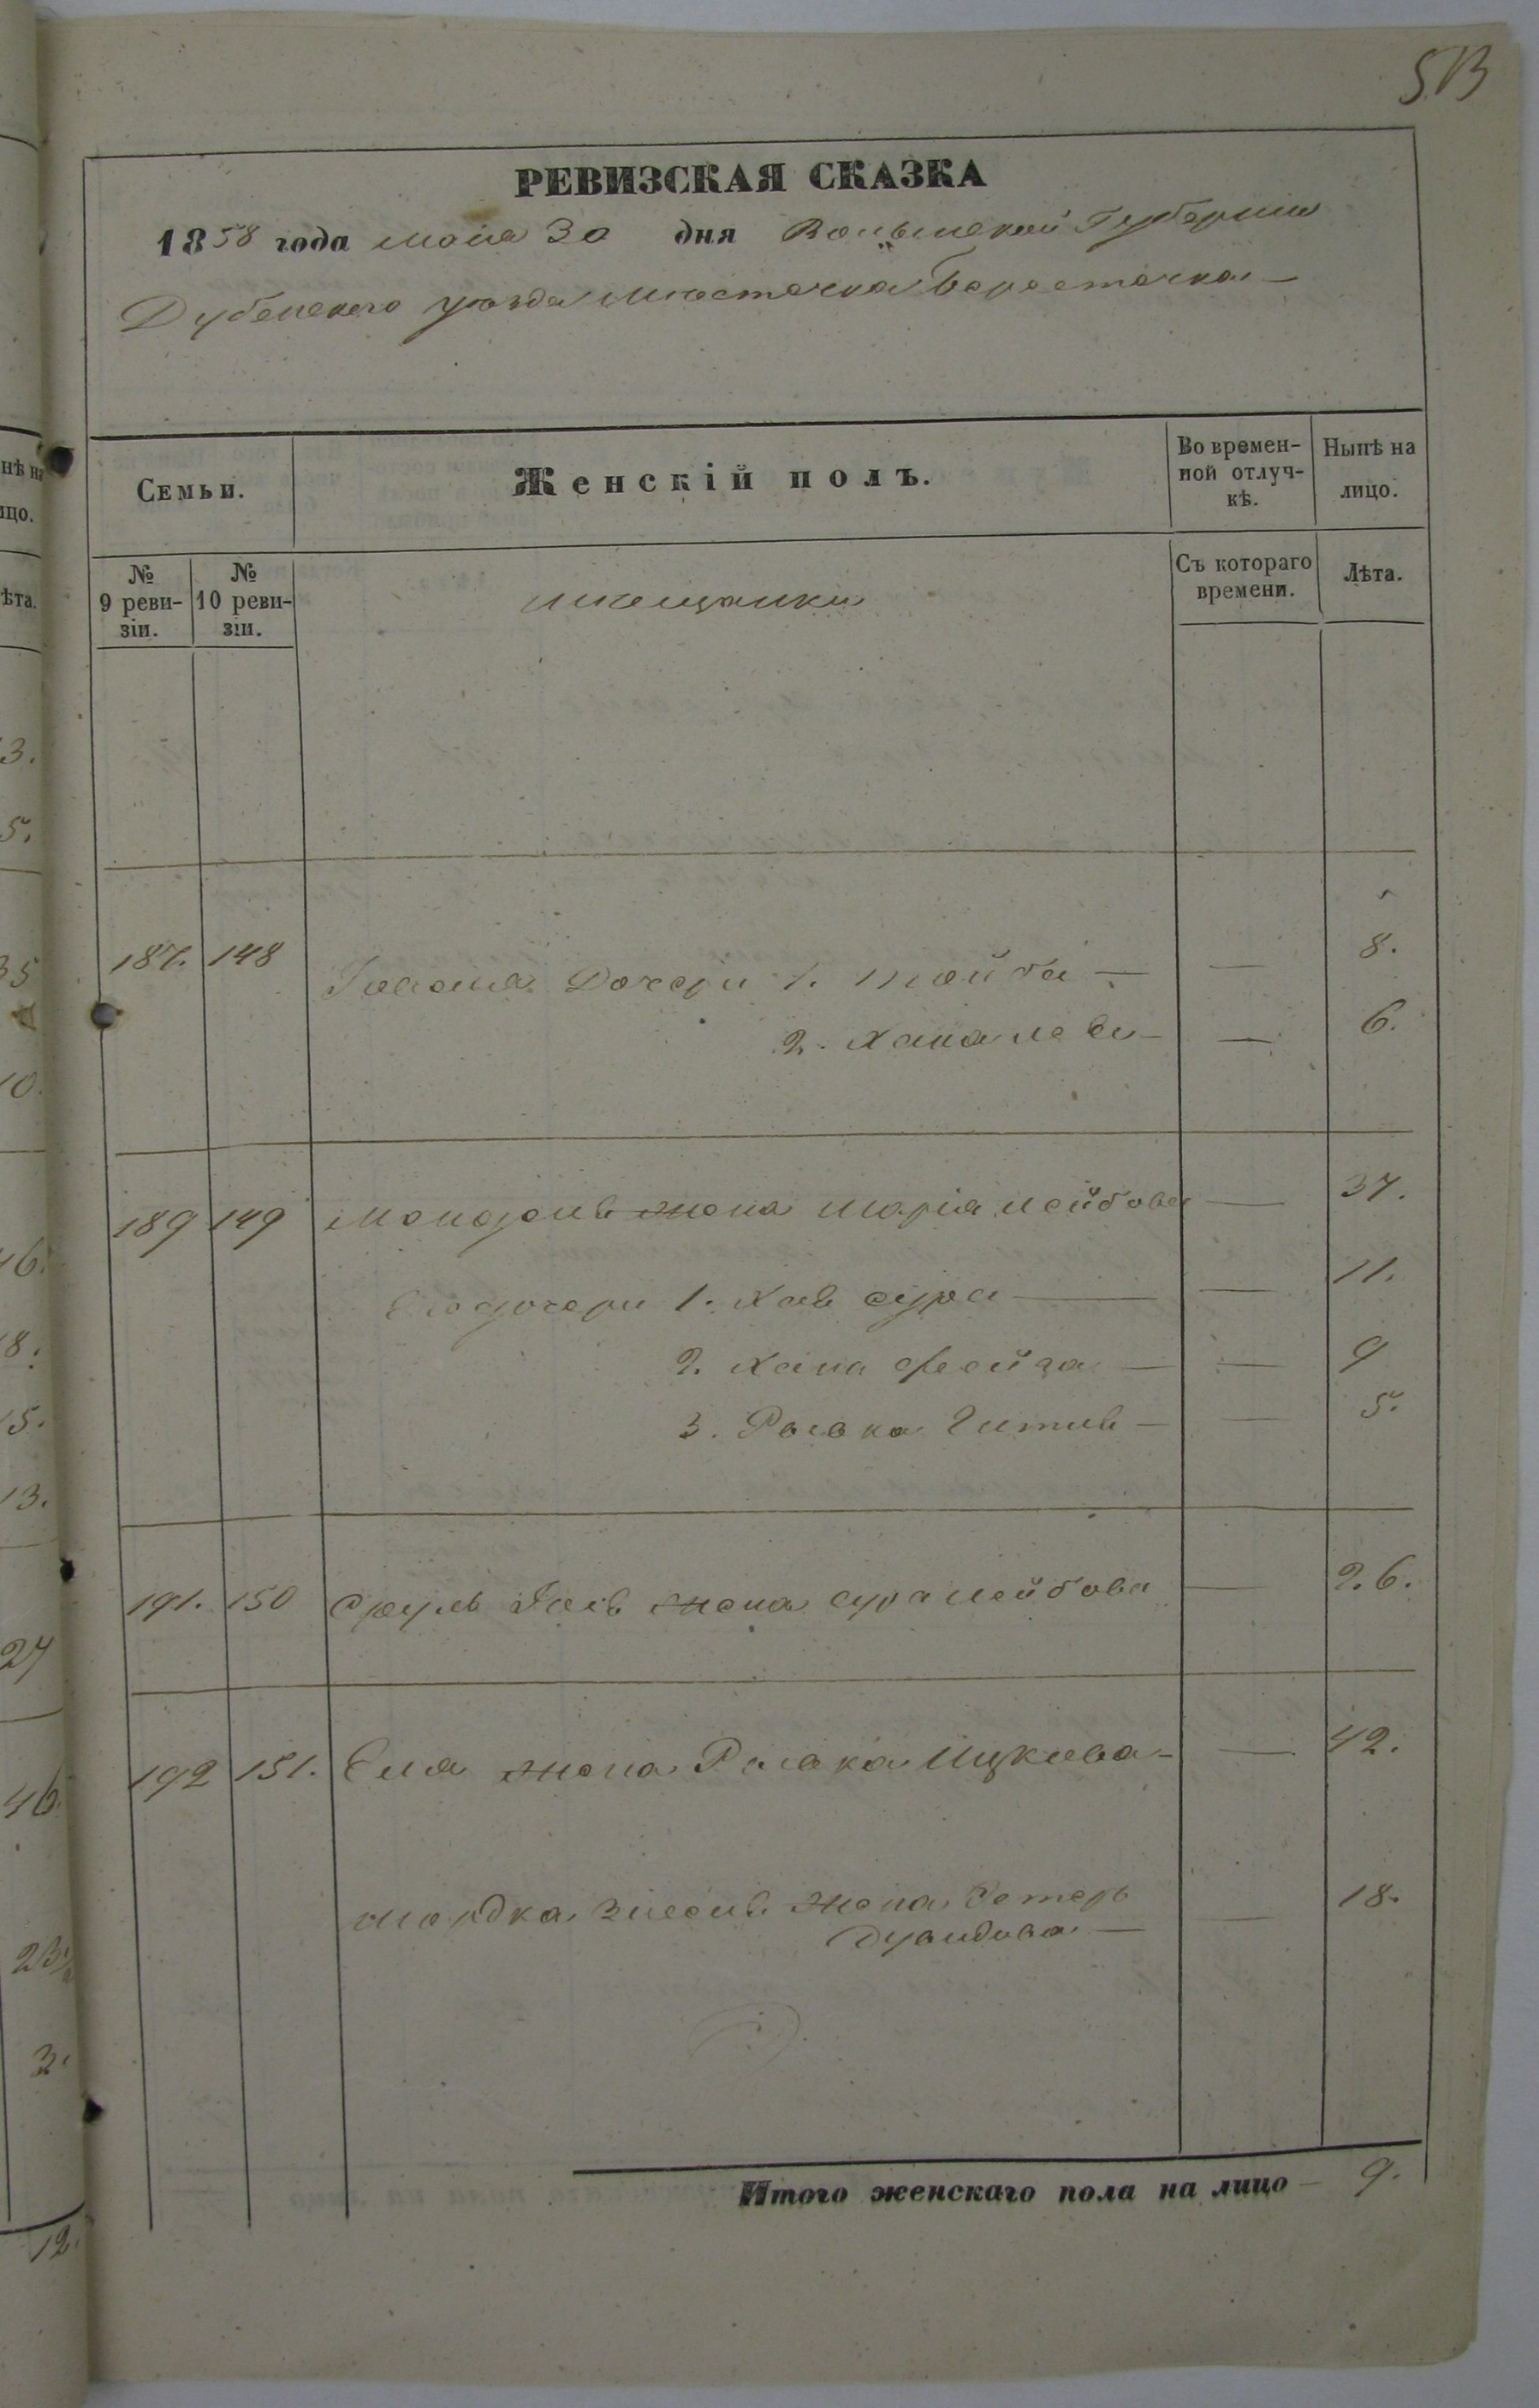 513
РЕВИЗСКАЯ СКАЗКА
1858 года мая 30 дня Волынской Губернии
Дубенского уѣзда мѣстечка Берестечка —
Семьи.
Женскій полъ.
Во времен-
ной отлуч-
кѣ.
Нынѣ на
лицо.
№
9 реви-
зіи.
№
10 реви-
зіи.
мѣщанки
Съ котораго
времени.
Лѣта.
187. 148 дочери 1. Тойба — — 8.
2. Хана — 6.
189 149 жена Марія Лейбова — 37.
Его дочери 1. Хая Сура — — 11.
2. Хана Фейга — — 9
3. Ривка Гитля — — 5.
191. 150 Сруль жена Сура Лейбова — 26.
192 151. Еля жена Ривка Ицкова — — 42.
Мордка жена Естеръ — 18.
Итого женскаго пола на лицо — 9.
нѣ на
ицо.
ѣта.
3.
5.
35
10.
16.
18.
15.
13.
27
46.
3.
12.